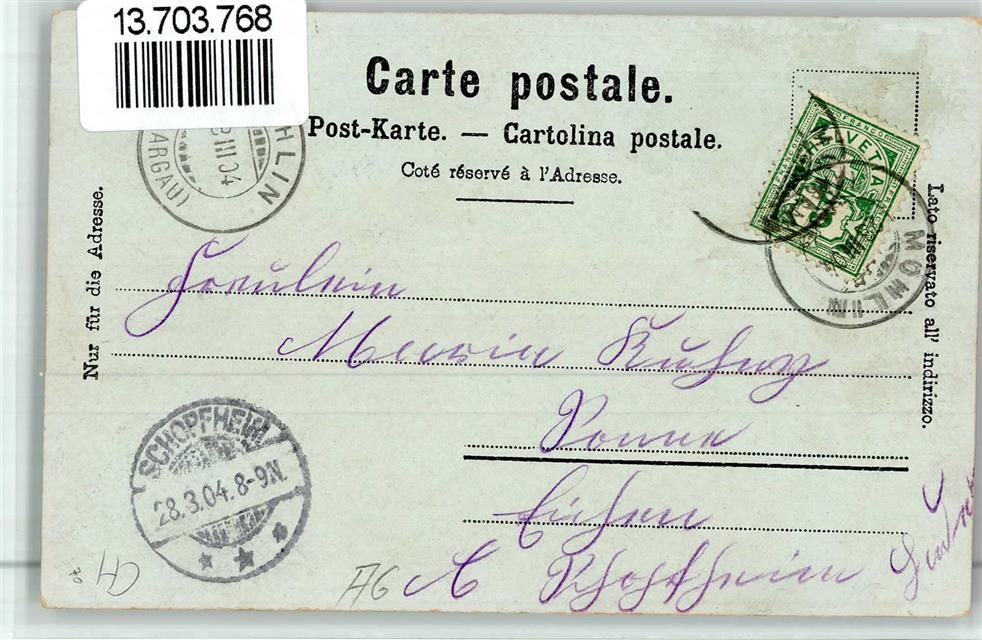 13.703.768
Carte postale.
Post-Karte. — Cartolina postale.
Coté réservé à l'Adresse.
HLIN
III 04
(ARGAU)
HELVETIA
FRANCO
MÖHLIN
Nur für die Adresse.
Lato riservato all' indirizzo.
Fräulein
Maria
Sonne
Eichen
SCHOPFHEIM
28.3.04. 8-9N.
A Schopfheim
CH
AG